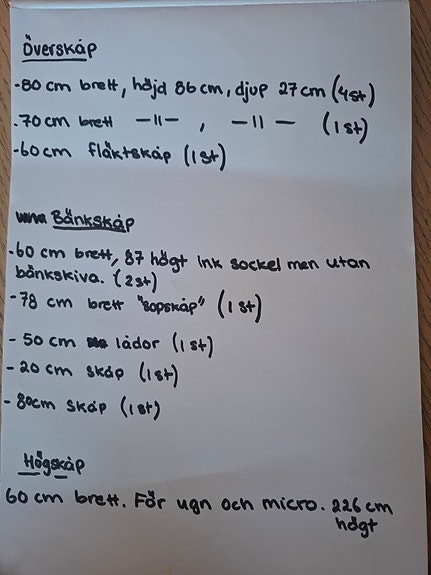 Överskåp
-80 cm brett, höjd 86 cm, djup 27 cm (4st)
-70 cm brett -11- , -11- (1st)
-60 cm fläktskåp (1st)
Bänkskåp
-60 cm brett, 87 högt ink sockel men utan
bänkskiva. (2st)
-78 cm brett "sopskåp" (1st)
- 50 cm lådor (1st)
- 20 cm skåp (1st)
- 80cm skåp (1st)
Högskåp
60 cm brett. För ugn och micro. 226 cm
högt